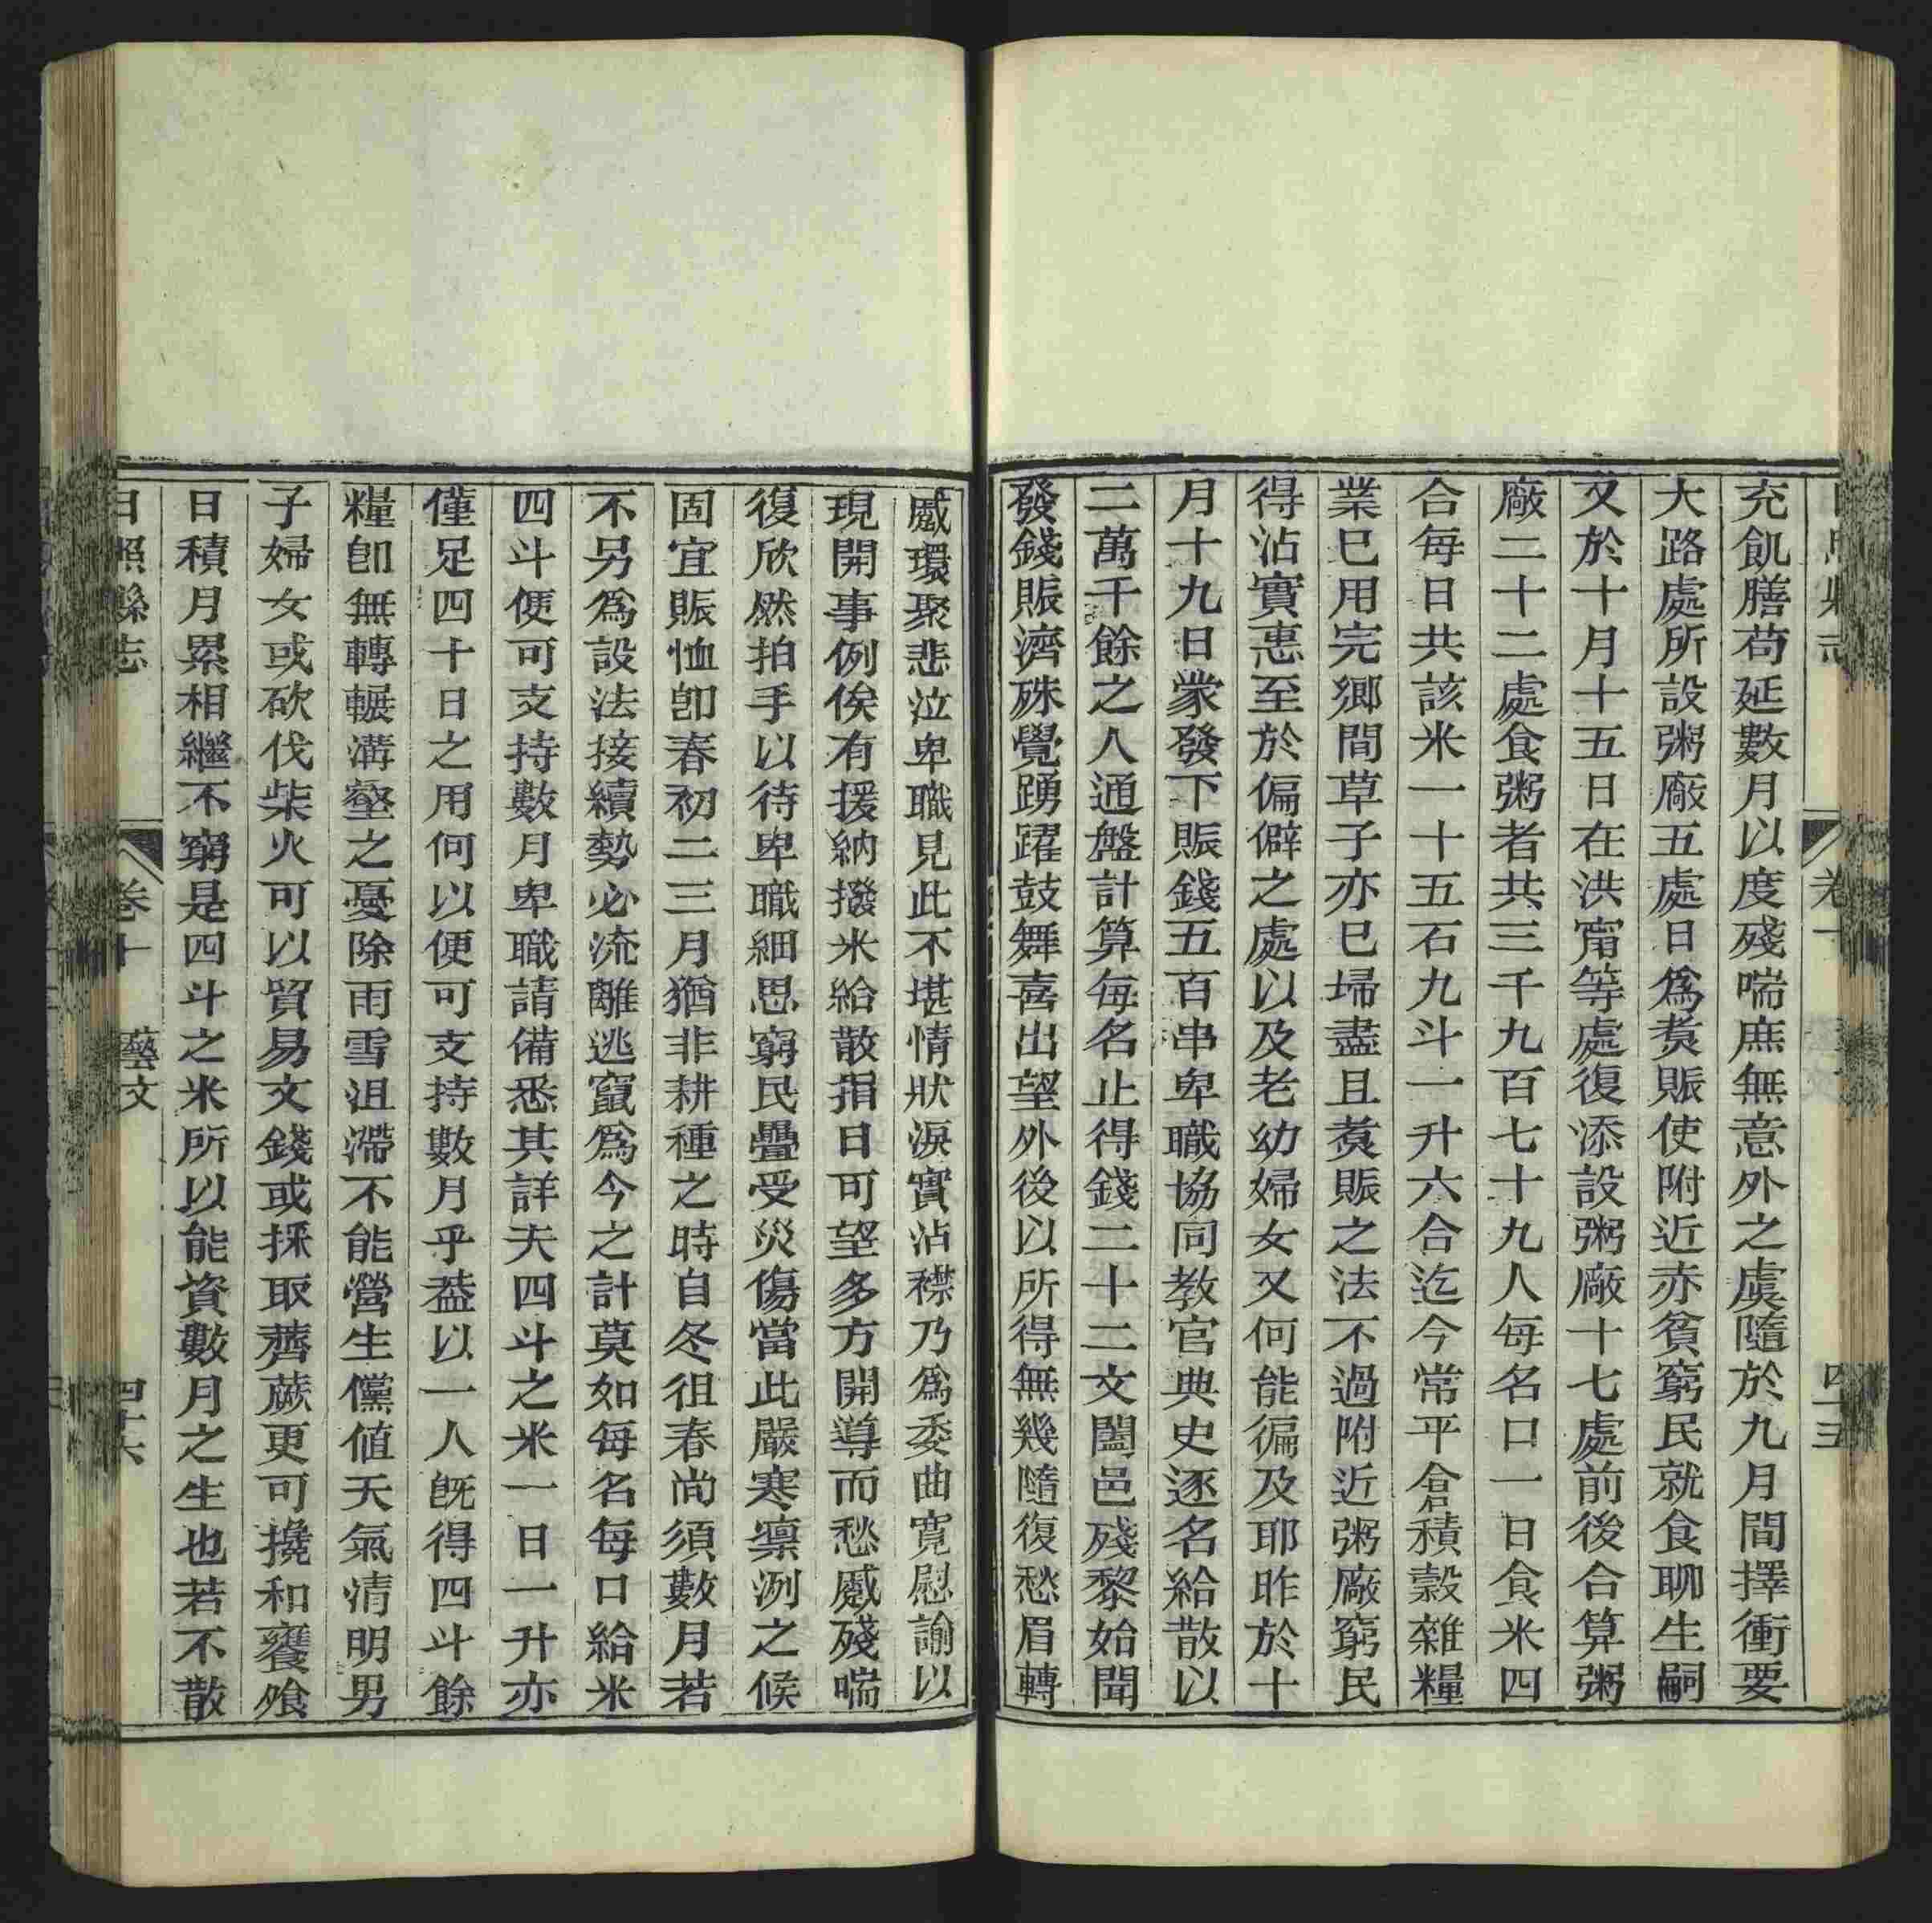 充飢膳苟延數月以度殘喘庶無意外之虞隨於九月間擇衝要
大路處所設粥廠五處日爲煑賑使附近赤貧窮民就食聊生嗣
又於十月十五日在洪甯等處復添設粥廠十七處前後合算粥
廠二十二處食粥者共三千九百七十九人每名口一日食米四
合每日共該米一十五石九斗一升六合迄今常平倉積穀雜糧
業已用完鄉間草子亦已埽盡且煑賑之法不過附近粥廠窮民
得沾實惠至於偏僻之處以及老幼婦女又何能徧及耶昨於十
月十九日蒙發下賑錢五百串卑職協同教官典史逐名給散以
二萬千餘之人通盤計算每名止得錢二十二文闔邑殘黎始聞
發錢賑濟殊覺踴躍鼓舞喜出望外後以所得無幾隨復愁眉轉
慼環聚悲泣卑職見此不堪情狀淚實沾襟乃爲委曲寬慰諭以
現開事例俟有援納撥米給散指日可望多方開導而愁慼殘喘
復欣然拍手以待卑職細思窮民疊受災傷當此嚴寒凛冽之候
固宜賑恤卽春初二三月猶非耕種之時自冬徂春尚須數月若
不另爲設法接續勢必流離逃竄爲今之計莫如每名每口給米
四斗便可支持數月卑職請備悉其詳夫四斗之米一日一升亦
僅足四十日之用何以便可支持數月乎葢以一人旣得四斗餘
糧卽無轉輾溝壑之憂除雨雪沮滯不能營生儻値天氣清明男
子婦女或砍伐柴火可以貿易文錢或採取薺蕨更可攙和饔飧
日積月累相繼不窮是四斗之米所以能資數月之生也若不散
日照縣志 卷十 藝文 四十六